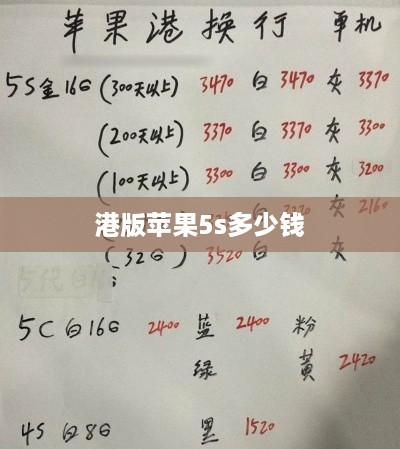 苹果港换行 单机
5S金16G(300天以上) 3470 白 3470 灰 3370
(200天以上) 3370 白 3370 灰 3300
(100天以上) 3300 白 3300 灰 3200
2160
港版苹果5s多少钱
(32G) 3520 白 灰
5C白16G 2400 蓝 2400 粉
绿 黄 2420
4S 白8G 黑 1520